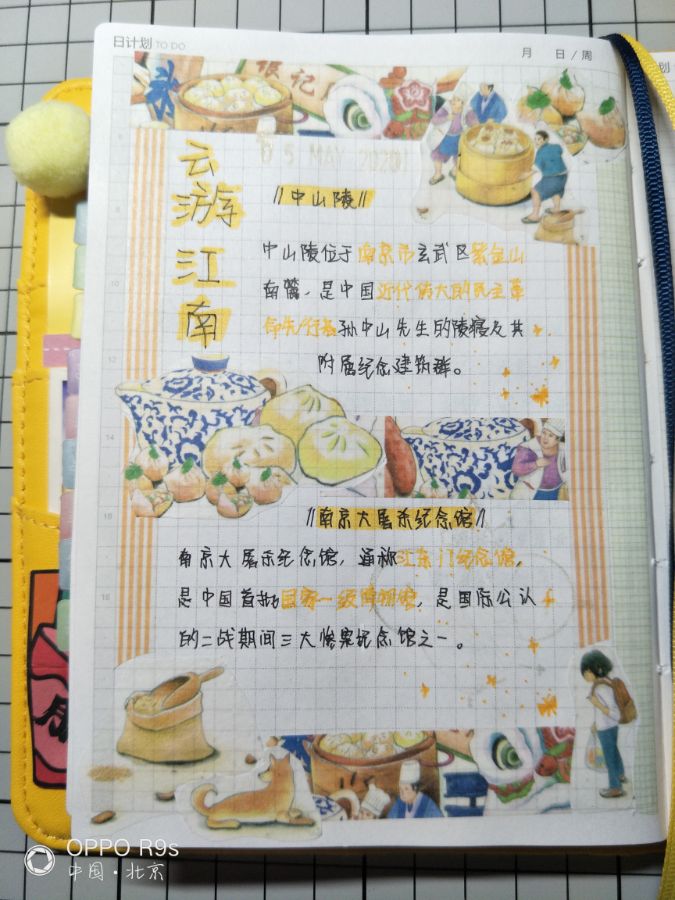 日计划 TO DO
月 日/周
張记
05 MAY 2020
云游江南
中山陵
中山陵位于南京市玄武区紫金山
南麓，是中国近代伟大的民主革
命先行者孙中山先生的陵寝及其
附属纪念建筑群。
南京大屠杀纪念馆
南京大屠杀纪念馆，通称江东门纪念馆，
是中国首批国家一级博物馆，是国际公认
的二战期间三大惨案纪念馆之一。
OPPO R9s
中国·北京